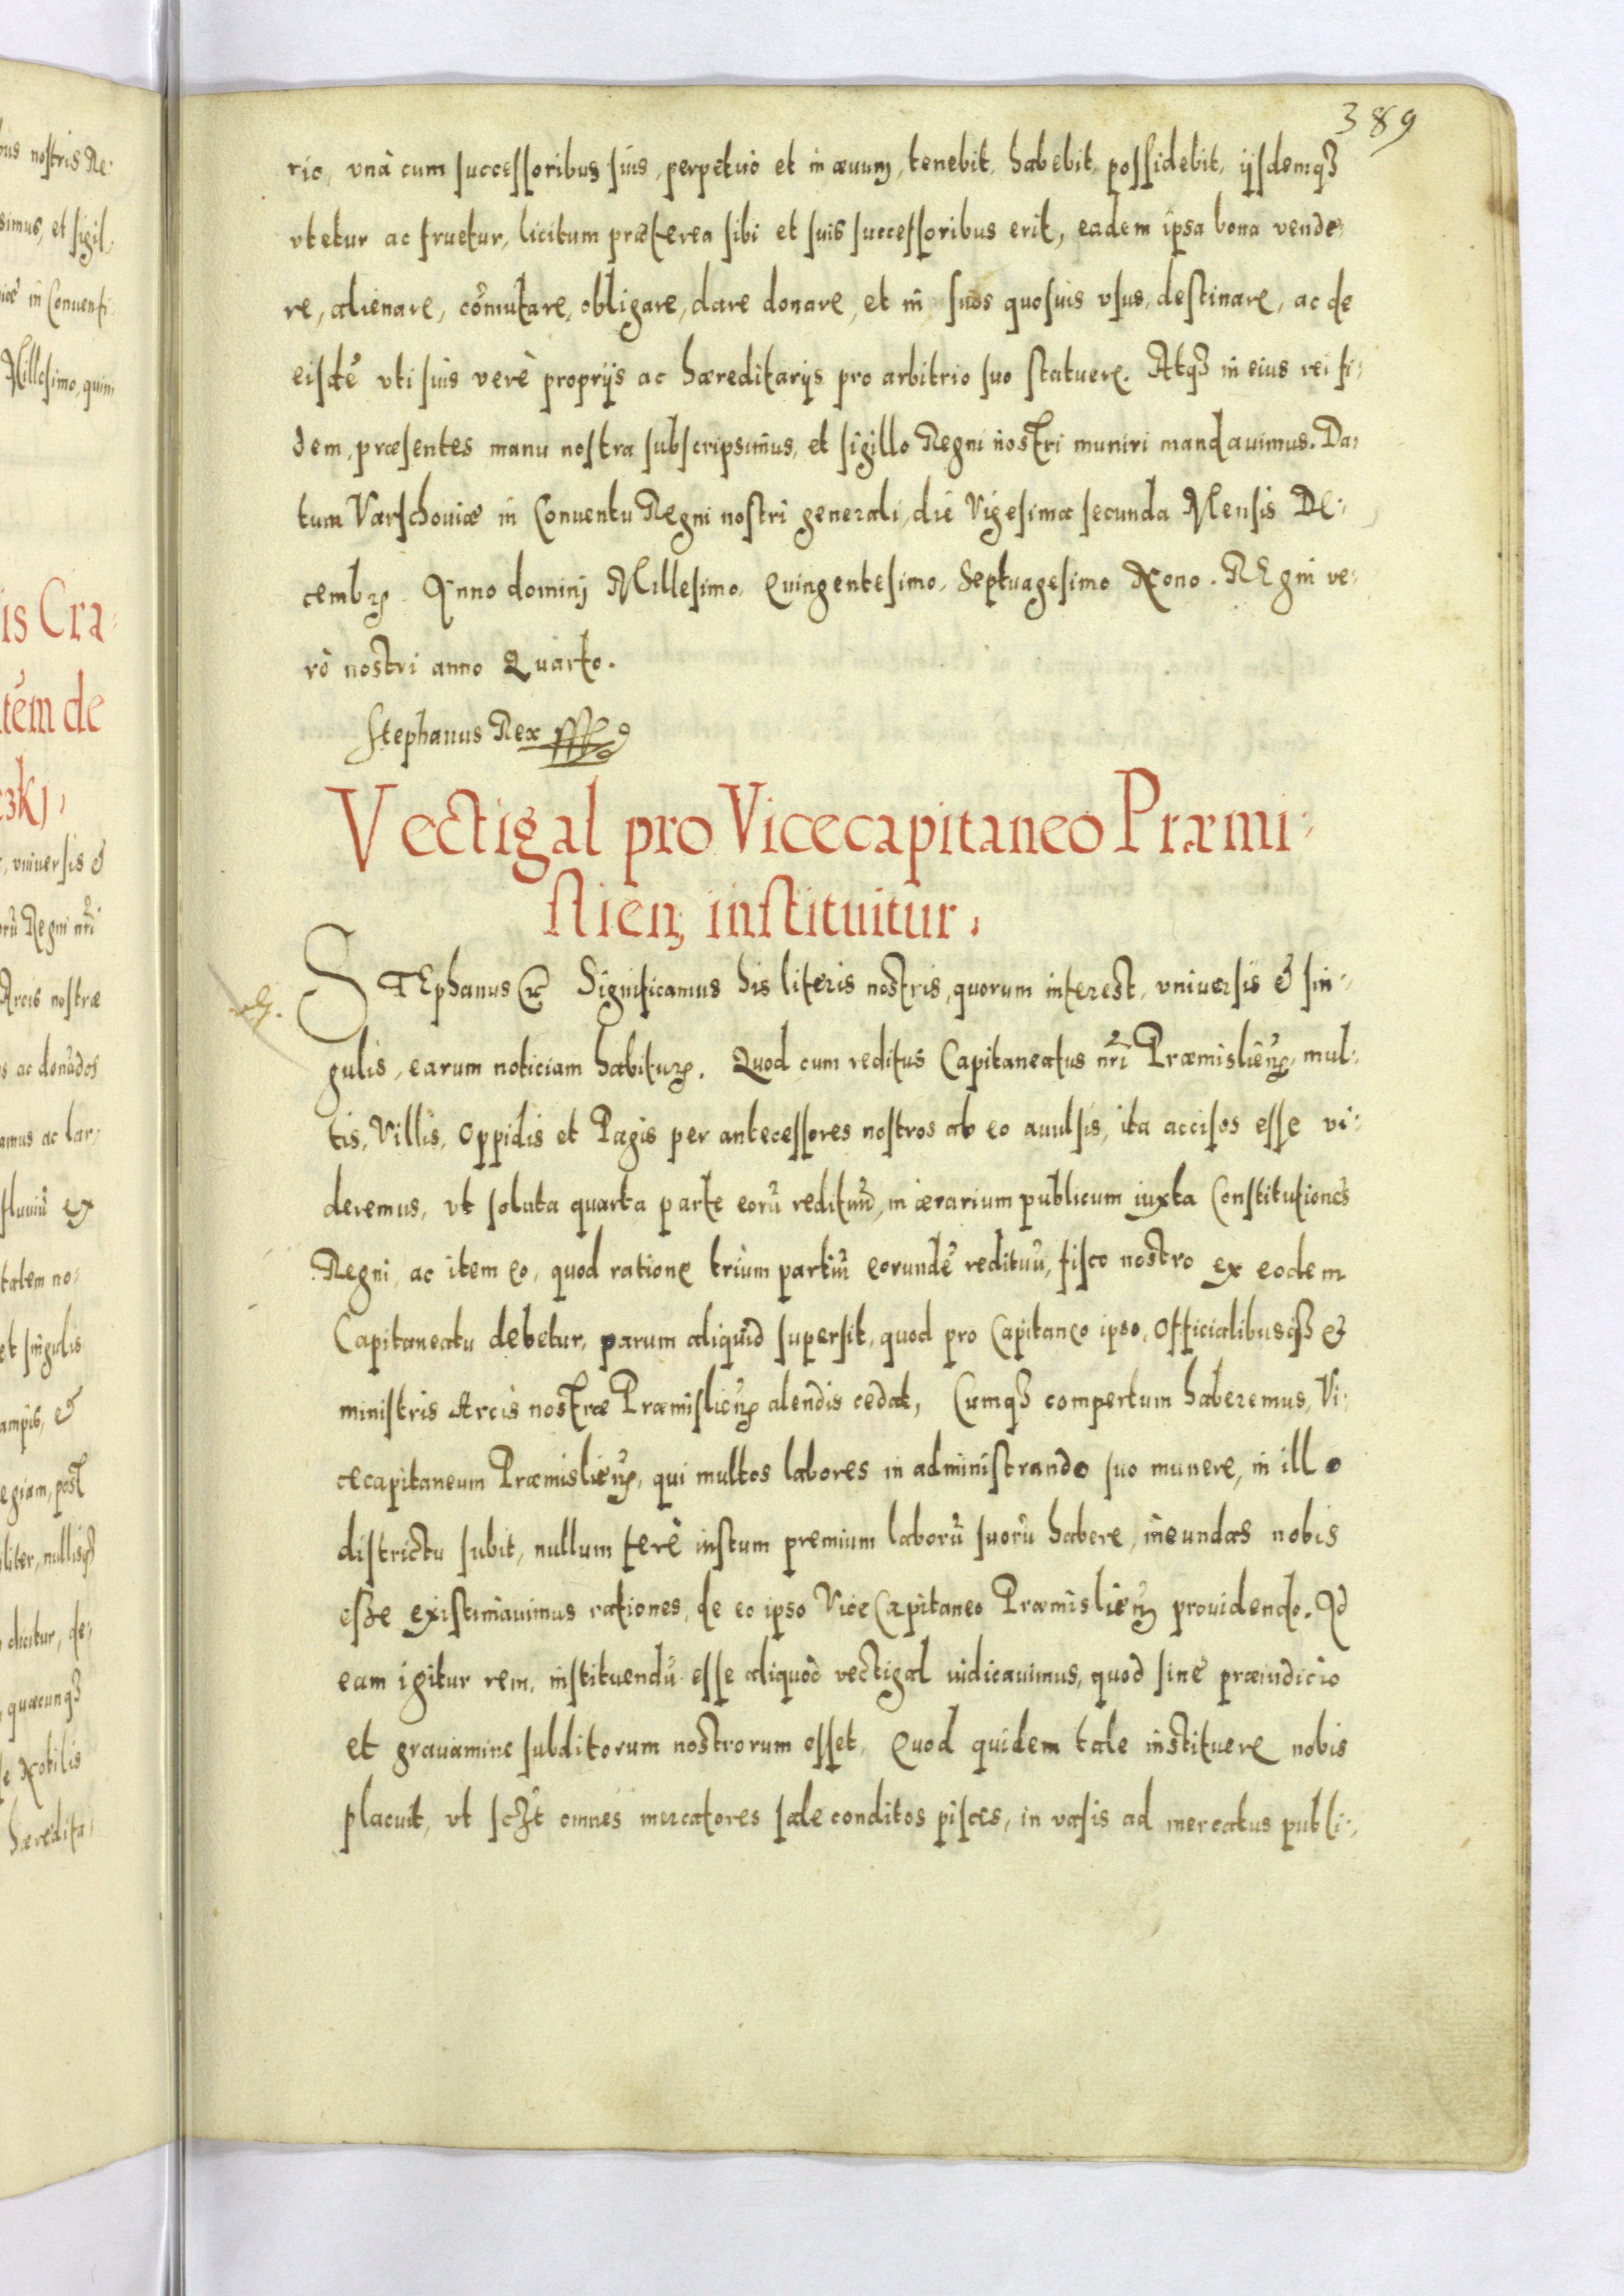 389
rio, vnà cum successoribus suis, perpetuò et in æuum, tenebit, habebit, possidebit, ijsdemqꝫ
vtetur ac fruetur, licitum præterea sibi et suis successoribus erit, eadem ipsa bona vende-
re, alienare, com̃utare, obligare, dare donare, et in suos quosuis vsus, destinare, ac de
eisdẽ vti suis verè proprijs ac hæreditarijs pro arbitrio suo statuere. Atqꝫ in eius rei fi-
dem, præsentes manu nostra subscripsimus, et sigillo Regni nostri muniri mandauimus. Da-
tum Varschouiæ in Conuentu Regni nostri generali, die Vigesima secunda Mensis De-
cembꝶ. Anno dominj Millesimo, Quingentesimo, Septuagesimo Nono. REgni ve-
rò nostri anno Quarto.
Stephanus Rex
Vectigal pro Vicecapitaneo Præmi-
slien, instituitur.
STEphanus Significamus his literis nostris, quorum interest, vniuersis & sin-
gulis, earum noticiam habituꝶ. Quod cum reditus Capitaneatus nr̃i Præmislieñ, mul-
tis, Villis, Oppidis et Pagis per antecessores nostros ab eo auulsis, ita accisos esse vi-
deremus, vt soluta quarta parte eorũ redituũ, in ærarium publicum iuxta Constitutiones
Regni, ac item eo, quod ratione trium partiũ eorundẽ redituũ, fisco nostro ex eodem
Capitaneatu debetur, parum aliquid supersit, quod pro Capitaneo ipso, Officialibusqꝫ &
ministris Arcis nostræ Præmislieñ alendis cedat, Cumqꝫ compertum haberemus, Vi-
cecapitaneum Præmislieñ, qui multos labores in administrando suo munere, in illo
districtu subit, nullum ferè iustum premium laborũ suorũ habere, ineundas nobis
esse existimauimus rationes, de eo ipso ViceCapitaneo Præmislieñ prouidendo. Ad
eam igitur rem, instituendũ esse aliquod vectigal iudicauimus, quod sine præiudicio
et grauamine subditorum nostrorum esset, Quod quidem tale instituere nobis
placuit, vt scꝫt omnes mercatores sale conditos pisces, in vasis ad mercatus publi-